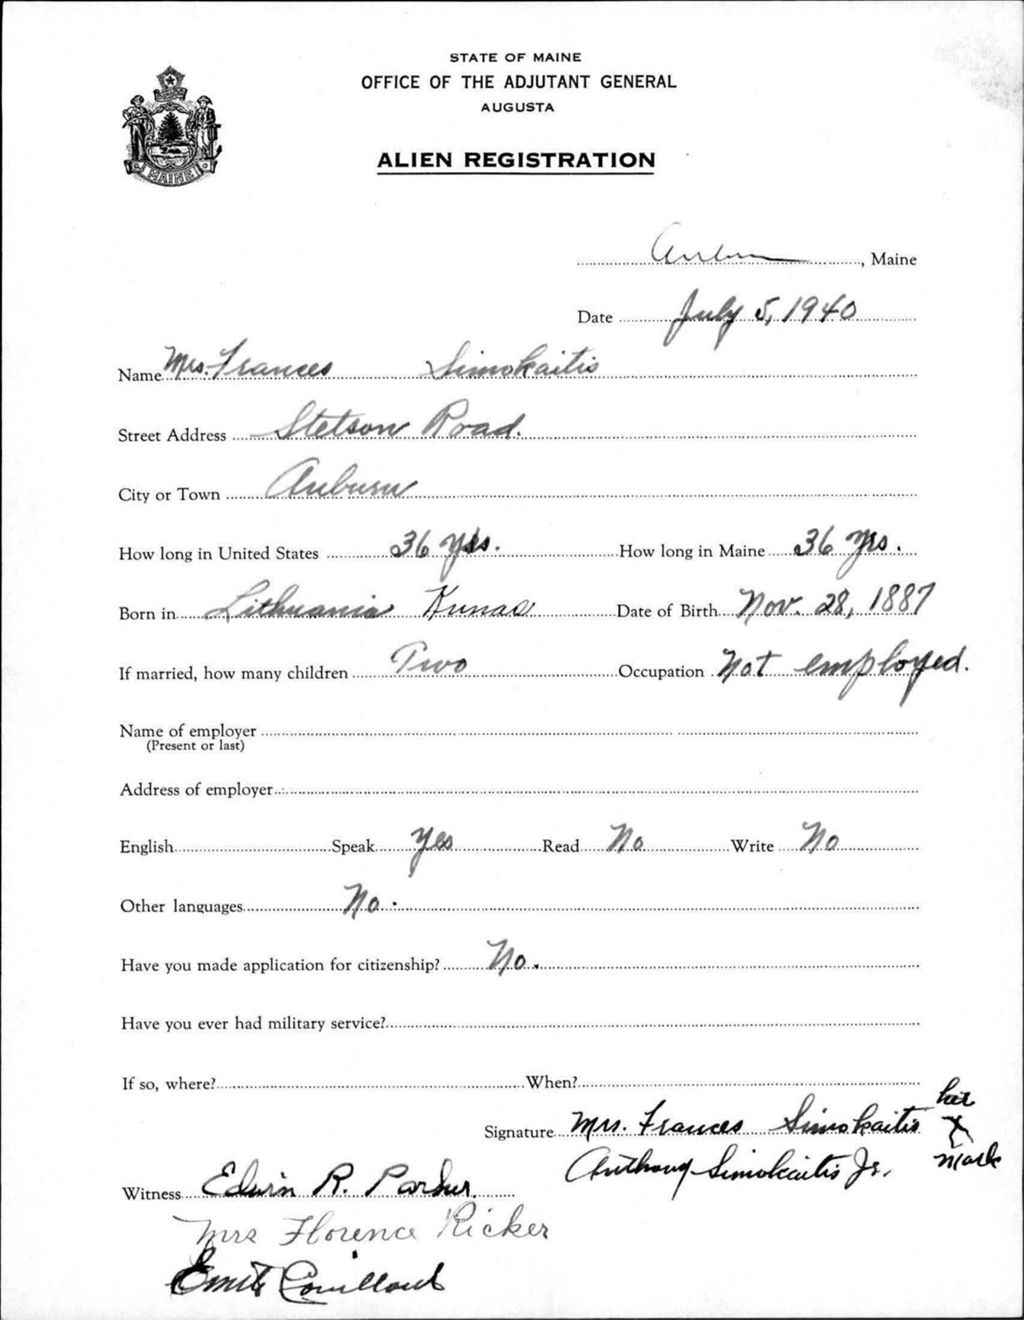 STATE OF MAINE
OFFICE OF THE ADJUTANT GENERAL
AUGUSTA
ALIEN REGISTRATION
MAINE
Auburn, Maine
Date July 5, 1940
Name Mrs. Frances Simokaitis
Street Address Stetson Road.
City or Town Auburn
How long in United States 36 yrs. How long in Maine 36 yrs.
Born in Lithuania Kunas Date of Birth Nov. 28, 1887
If married, how many children Two Occupation Not employed.
Name of employer
(Present or last)
Address of employer
English Speak Yes Read No Write No
Other languages No.
Have you made application for citizenship? No.
Have you ever had military service?
If so, where? When?
her
Signature Mrs. Frances Simokaitis X
mark
Anthony Simokaitis Jr.
Witness Edwin R. Parker
Mrs Florence Ricker